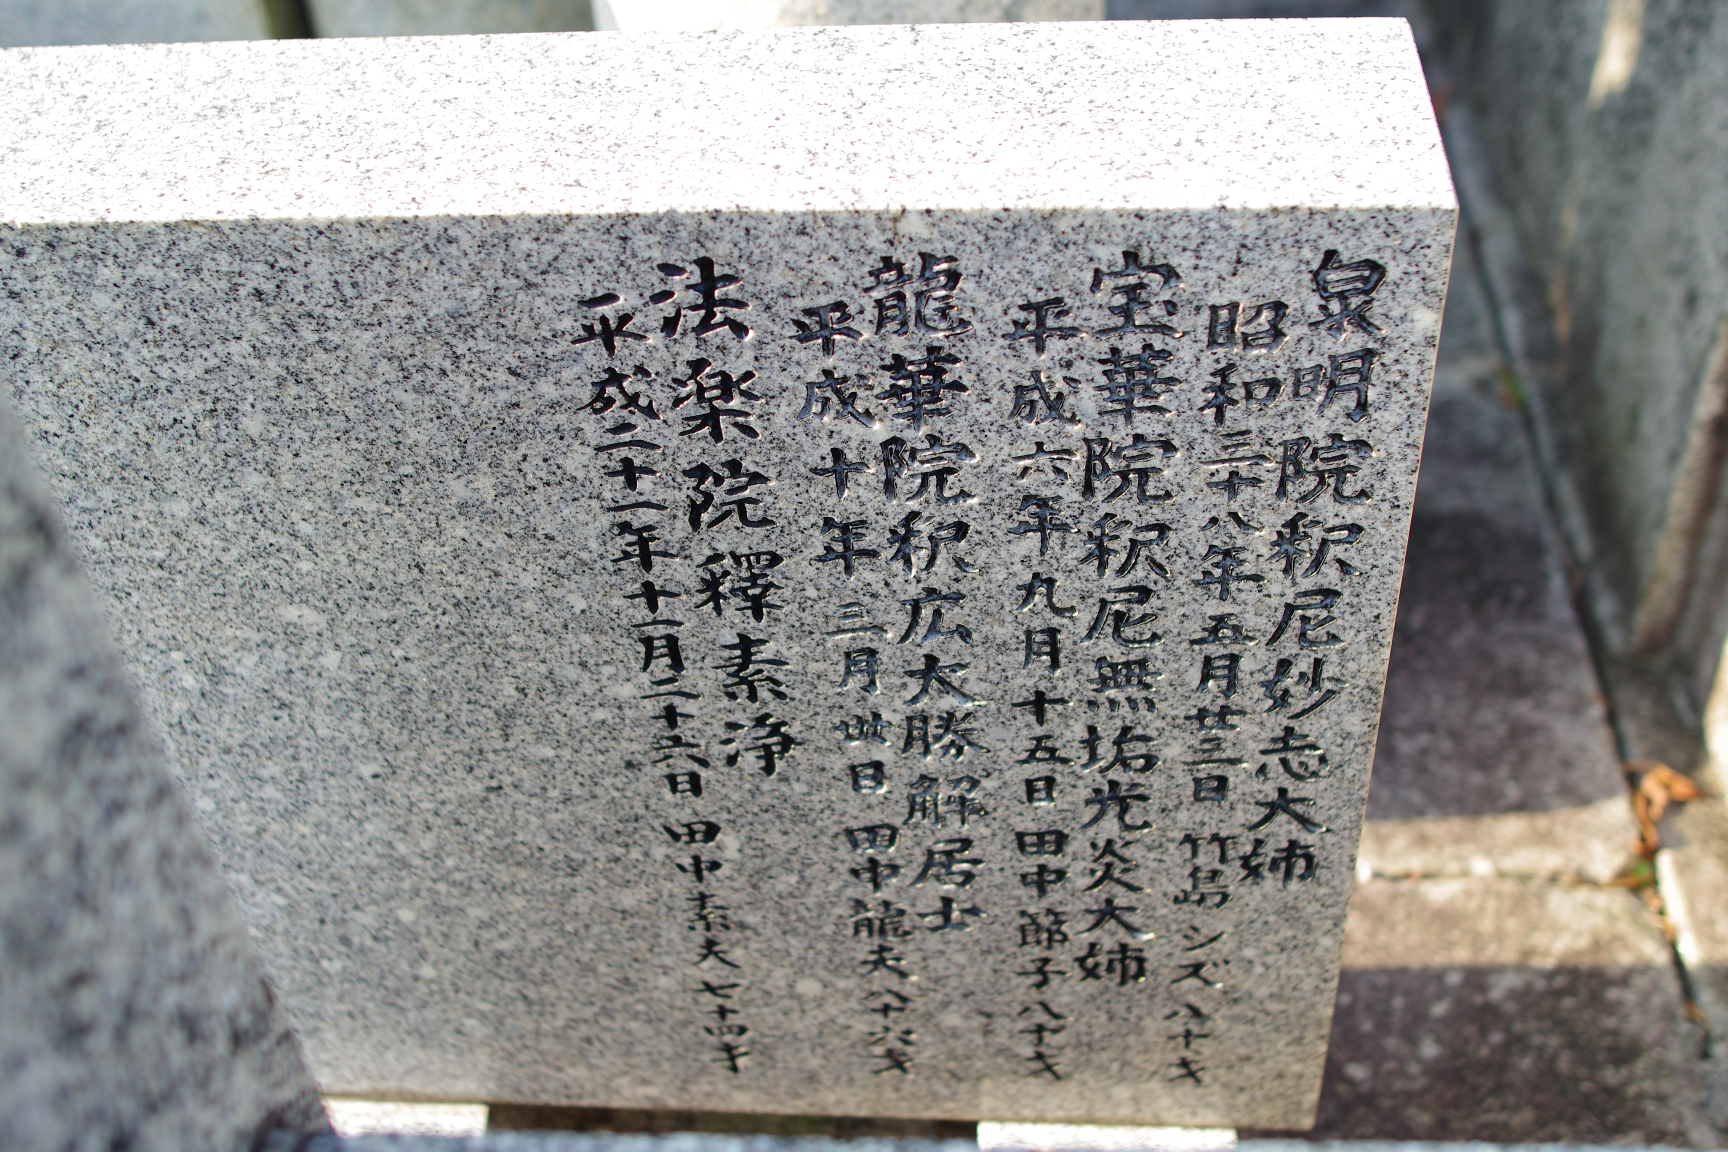 泉明院釈尼妙志大姉
昭和三十八年五月廿三日 竹島シズ 八十才
宝華院釈尼無垢光炎大姉
平成六年九月十五日 田中節子 八十才
龍華院釈広大勝解居士
平成十年三月卅日 田中龍夫 八十六才
法楽院釋素浄
平成二十一年十一月二十六日 田中素夫 七十四才